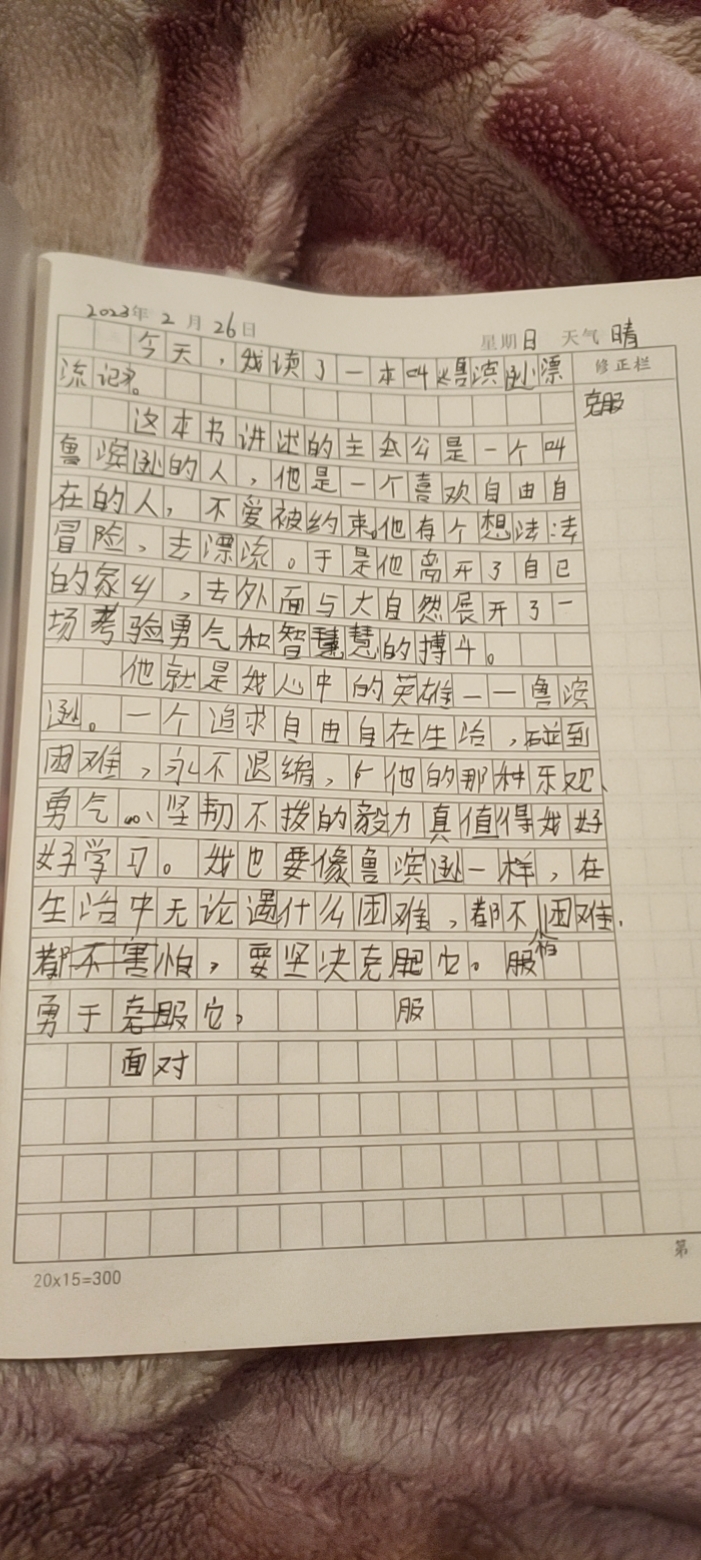 2023年2月26日 星期日 天气晴
修正栏
今天,我读了一本叫《鲁滨逊漂
流记》。
克服
这本书讲述的主人公是一个叫
鲁滨逊的人,他是一个喜欢自由自
在的人,不爱被约束。他有个想法:去
冒险、去漂流。于是他离开了自己
的家乡,去外面与大自然展开了一
场考验勇气和智慧的搏斗。
他就是我心中的英雄——鲁滨
逊。一个追求自由自在生活,碰到
困难,永不退缩,他的那种乐观、
勇气、坚韧不拨的毅力真值得我好
好学习。我也要像鲁滨逊一样,在
生活中无论遇什么困难,都不怕困难,
都不害怕,要坚决克服它。服
勇于克服它,
服
面对
第
20x15=300